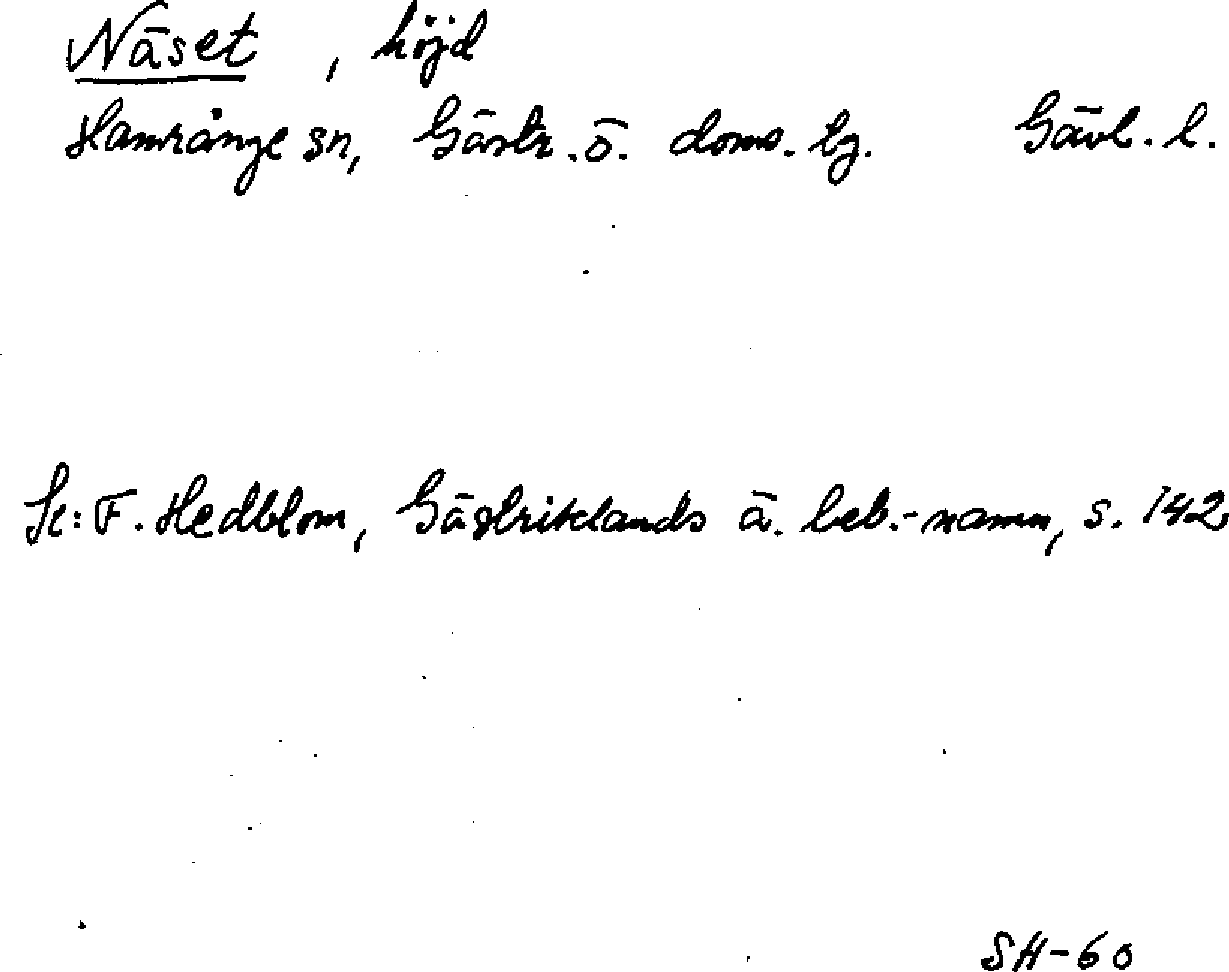 Näset, höjd
Hamrånge sn, Gästr. ö. doms. lg. Gävl. l.
Se: F. Hedblom, Gästriklands ä. beb.-namn, s. 142
SH-60